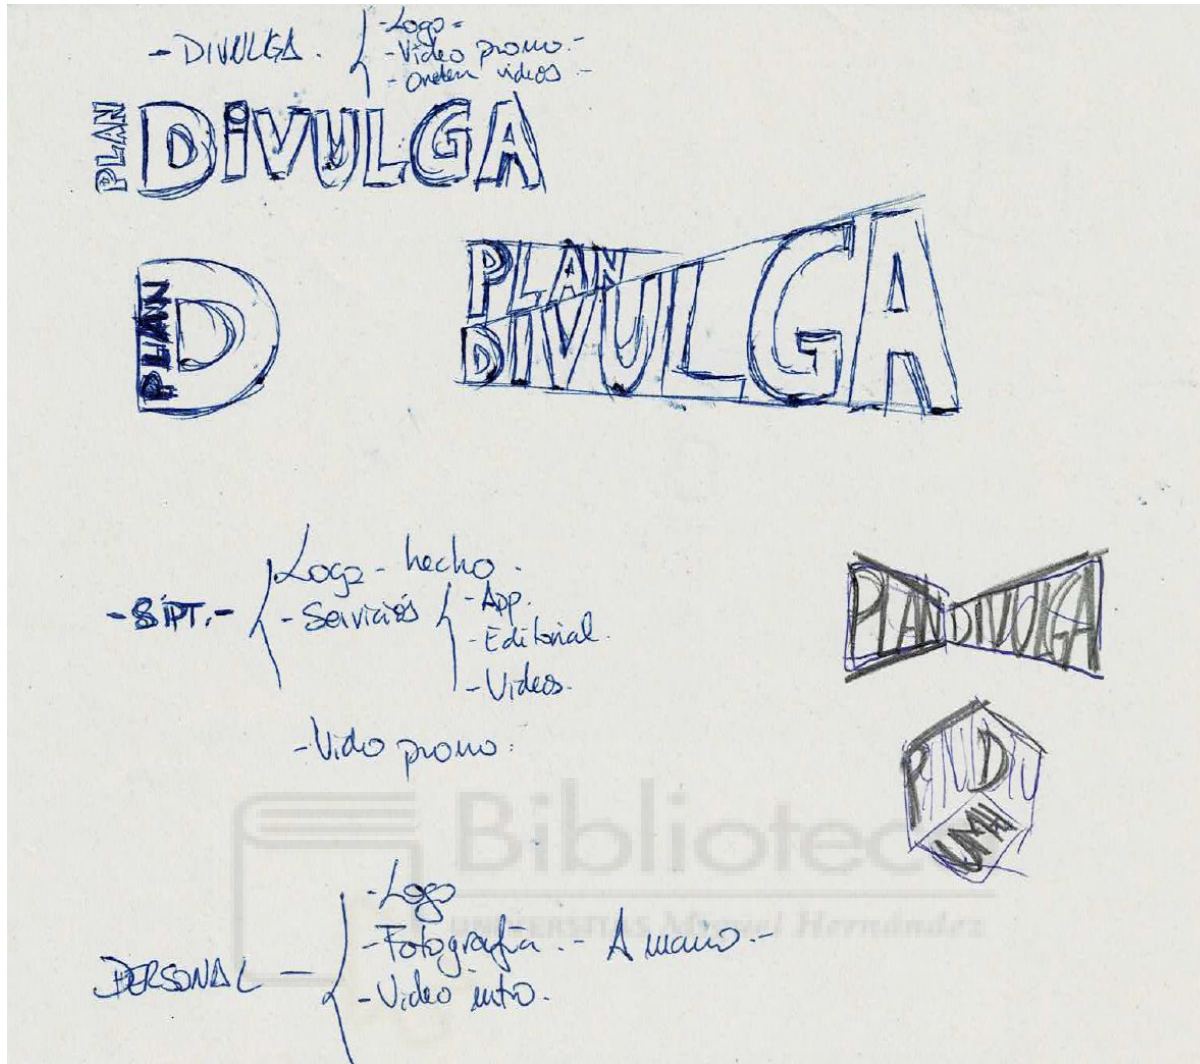 - DIVULGA.
- Logo -
- Video promo.-
- Orden videos -
PLAN
DiVULGA
PLAN
D
PLAN
DIVULGA
- SIPT.-
Logo - hecho -
- Servicios
- App.
- Editorial.
- Videos.
PLAN DIVULGA
- Vido promo:
P
D
UMH
Biblioteca
UNIVERSITAS Miguel Hernández
PERSONAL -
- Logo
- Fotografia.- A mano.-
- Video intro.